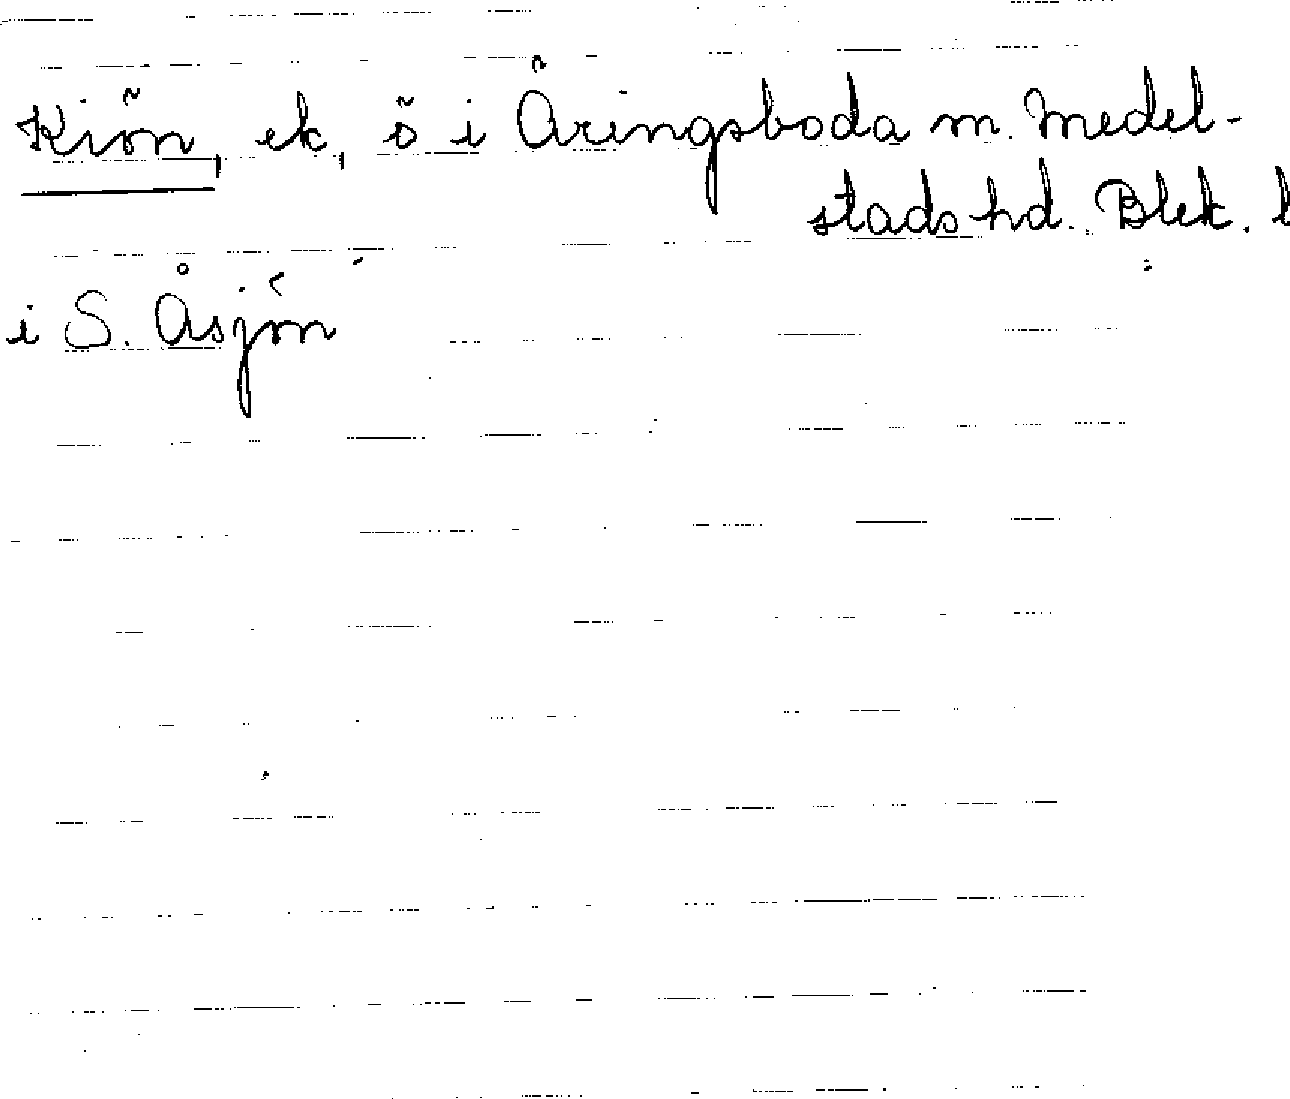 Kiön, ek, ö i Åringsboda m. Medel-
stads hd. Blek. l
i S. Åsjön